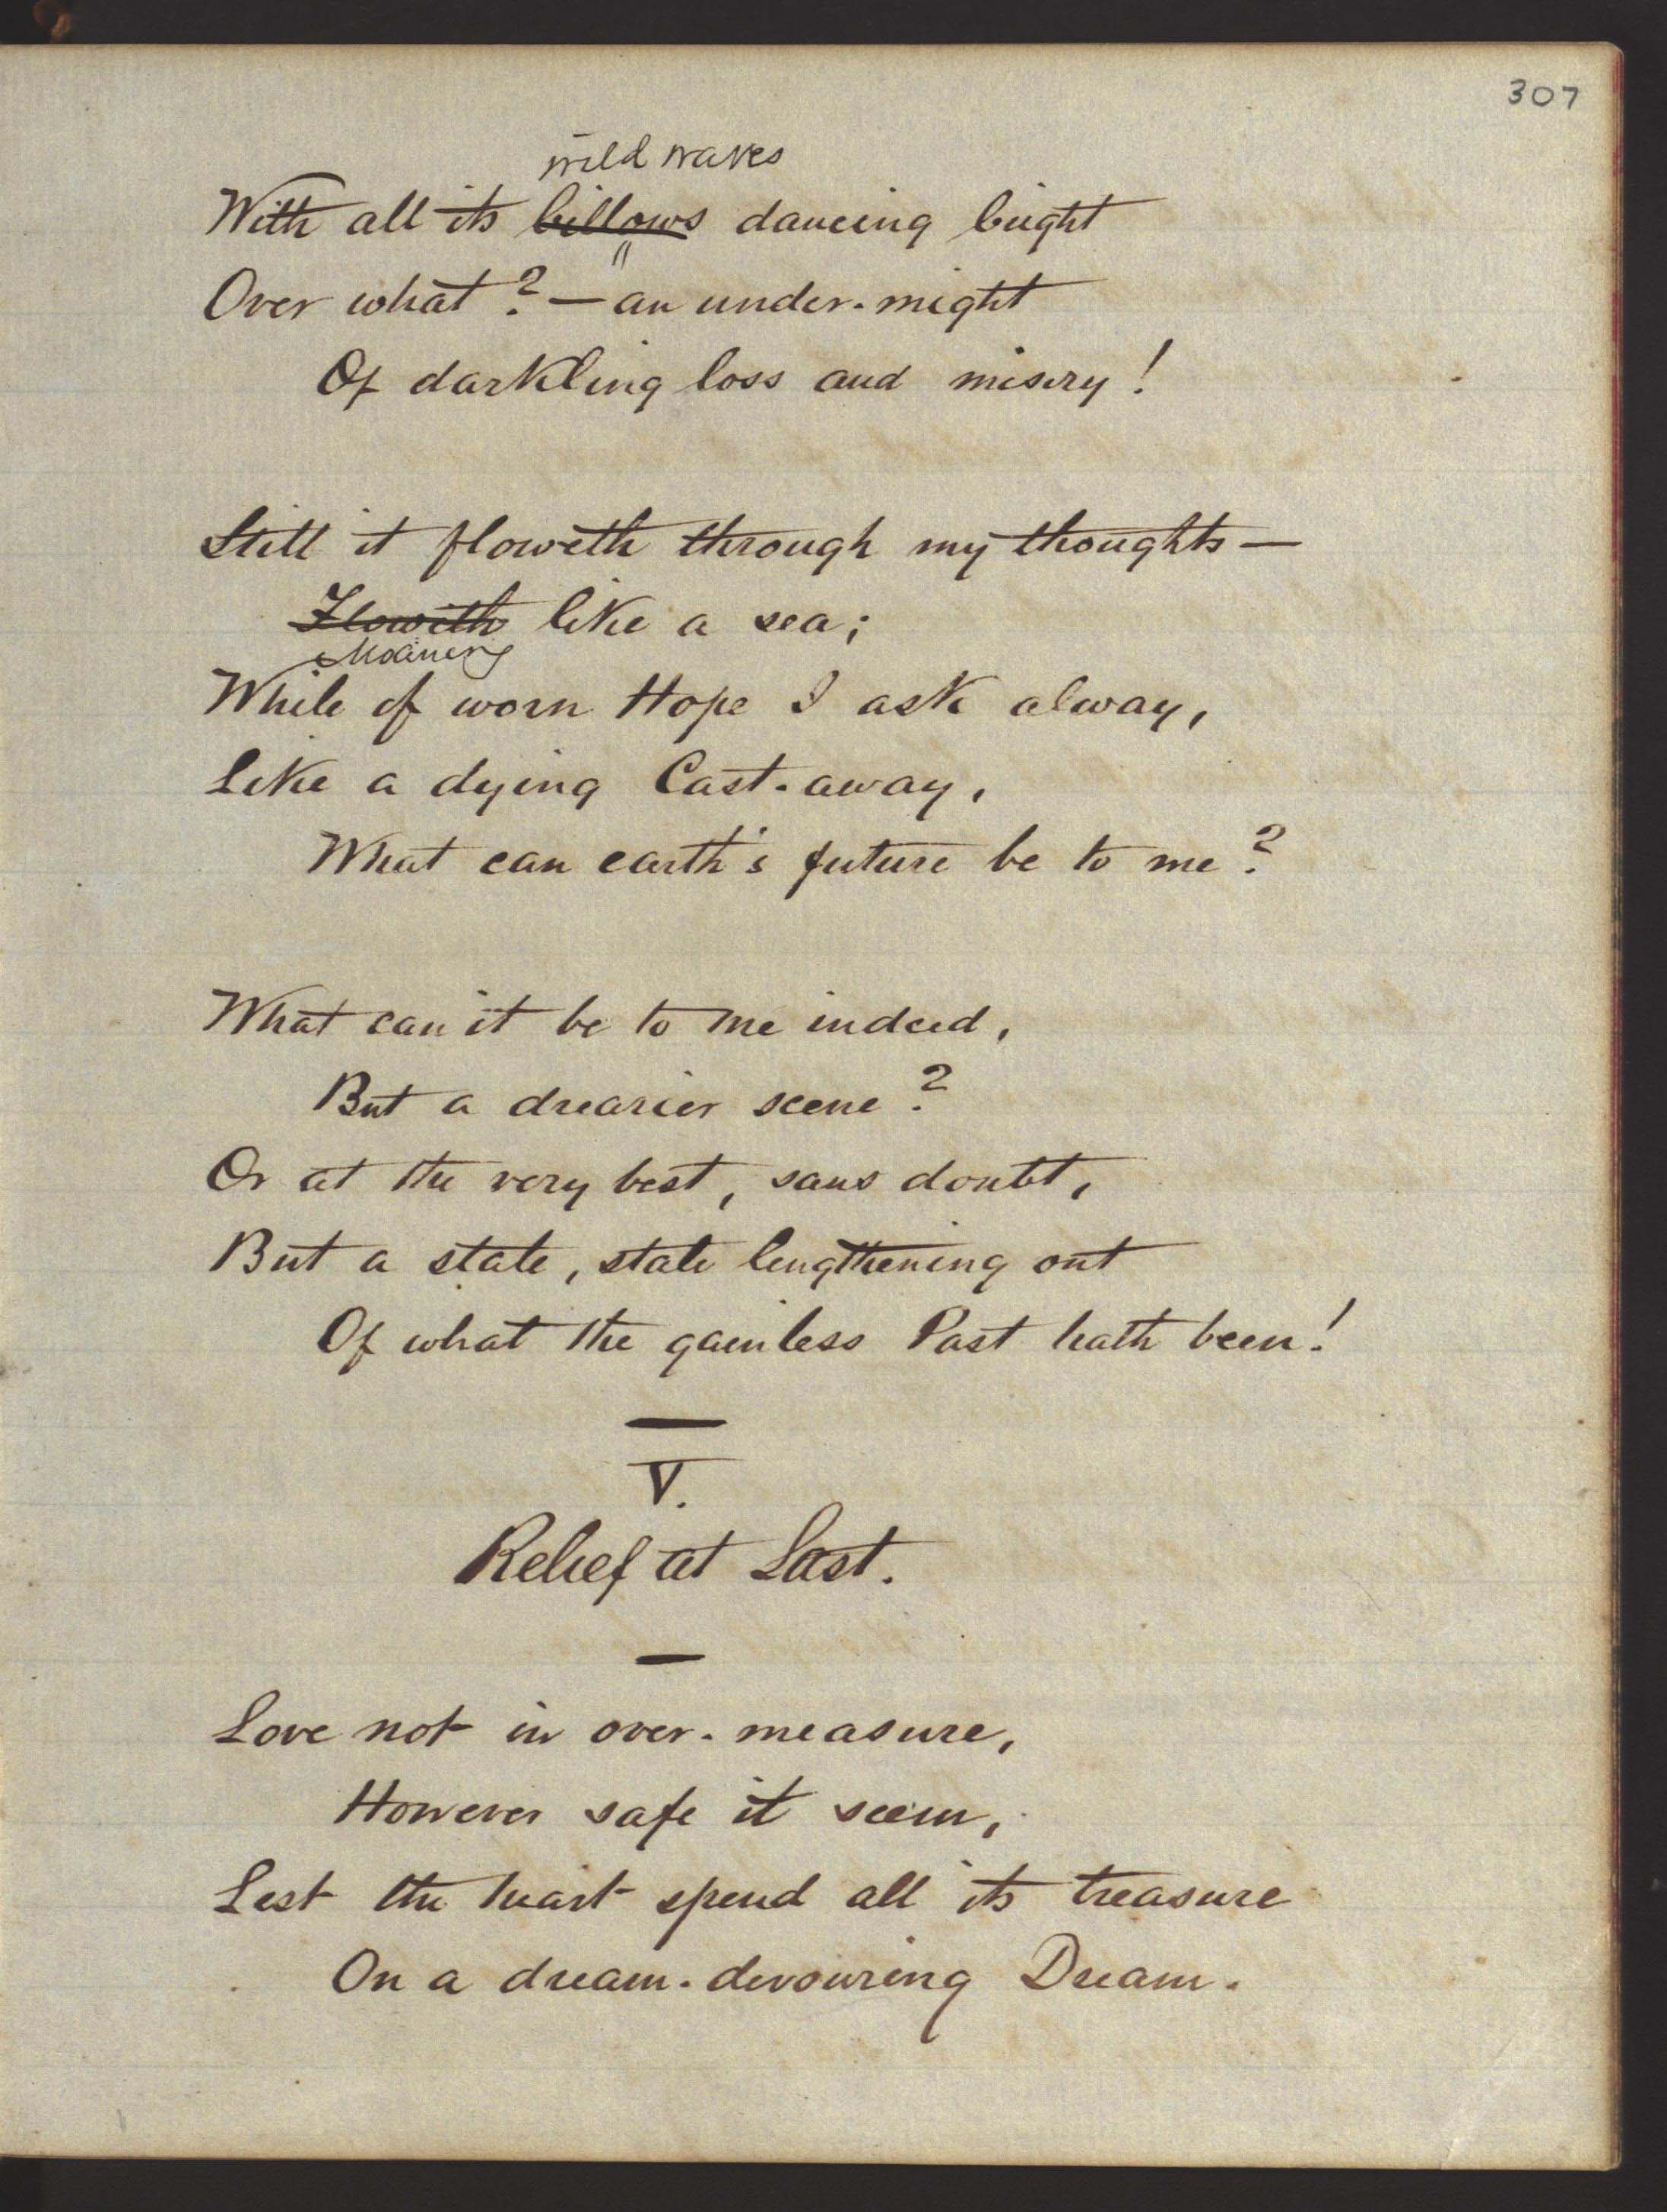 307
wild waves
With all its billows dancing bright
Over what? — an under-might
Of darkling loss and misery!
Still it floweth through my thoughts —
Floweth like a sea;
Moaning
While of worn Hope I ask alway,
Like a dying Cast-away,
What can earth's future be to me?
What can it be to me indeed,
But a drearier scene?
Or at the very best, sans doubt,
But a state, stale lengthening out
Of what the gainless Past hath been!
V.
Relief at Last.
Love not in over-measure,
However safe it seem,
Lest the heart spend all its treasure
On a dream-devouring Dream.